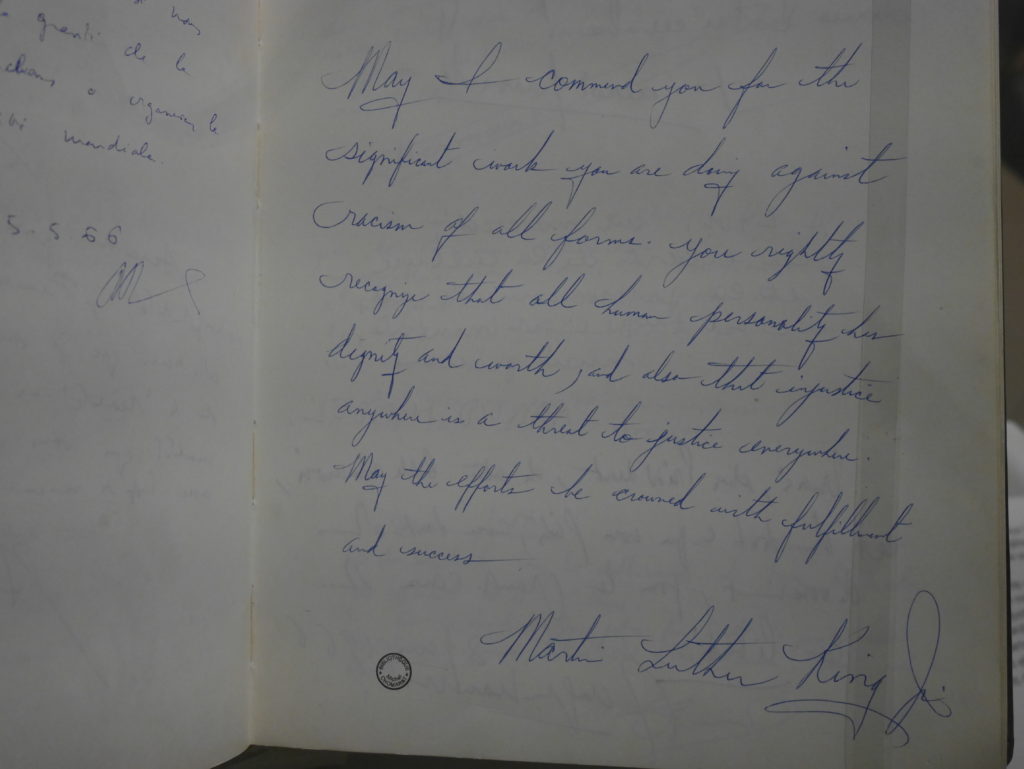 grandi de la
organiser le
mondiale.
5.5 66
May I commend you for the
significant work you are doing against
racism of all forms. You rightly
recognize that all human personality has
dignity and worth, and also that injustice
anywhere is a threat to justice everywhere.
May the efforts be crowned with fulfillment
and success
Martin Luther King Jr.
BIBLIOTHEQUE